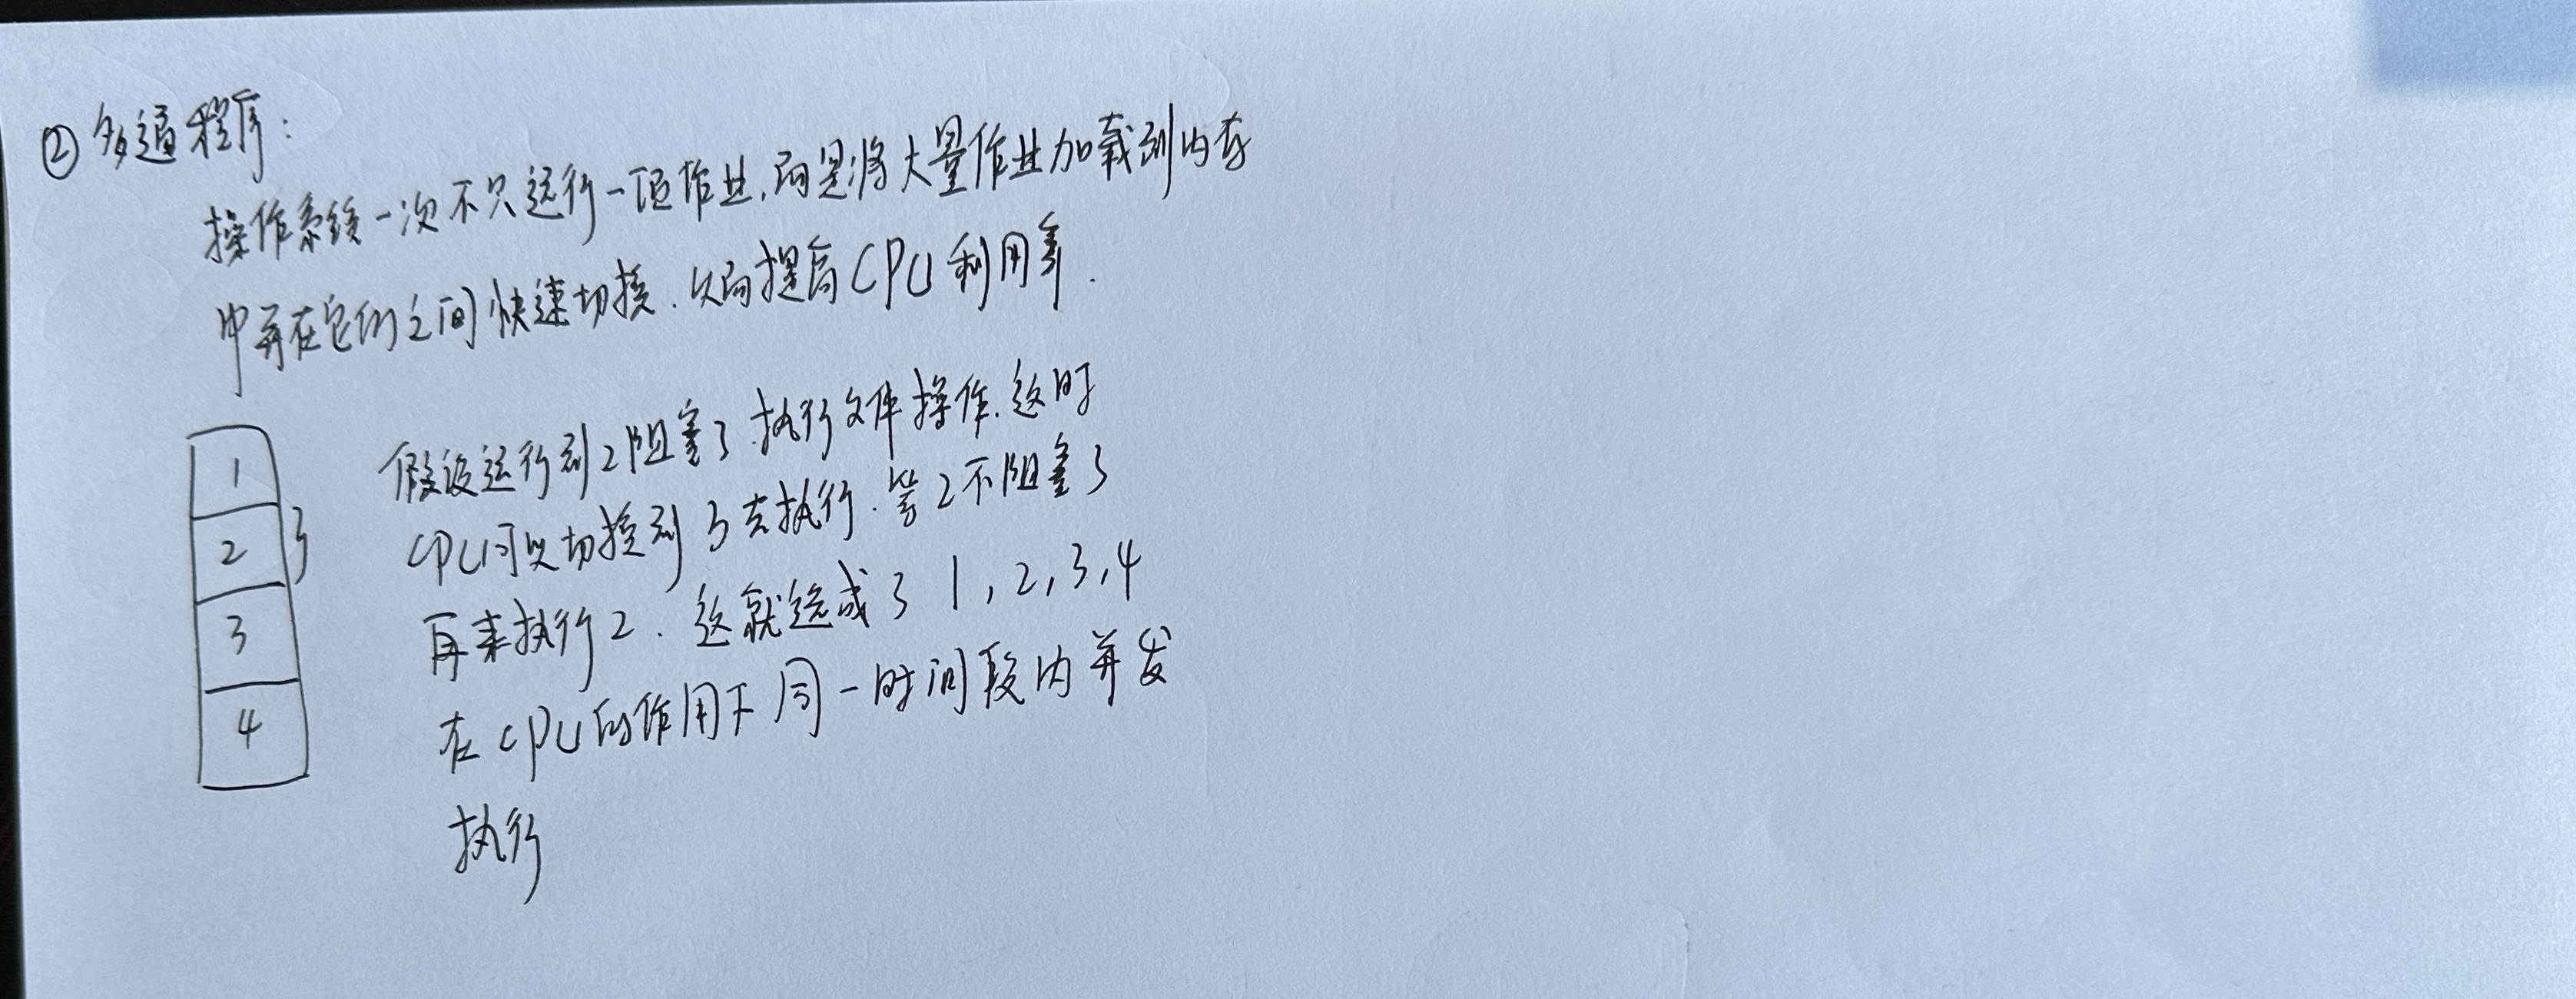 ②多道程序：
操作系统一次不只运行一项作业，而是将大量作业加载到内存
中并在它们之间快速切换，从而提高CPU利用率.
假设运行到2阻塞了，执行文件操作，这时
CPU可以切换到3去执行，等2不阻塞了
再来执行2. 这就造成了 1,2,3,4
在CPU的作用下同一时间段内并发
执行
1
2
3
4